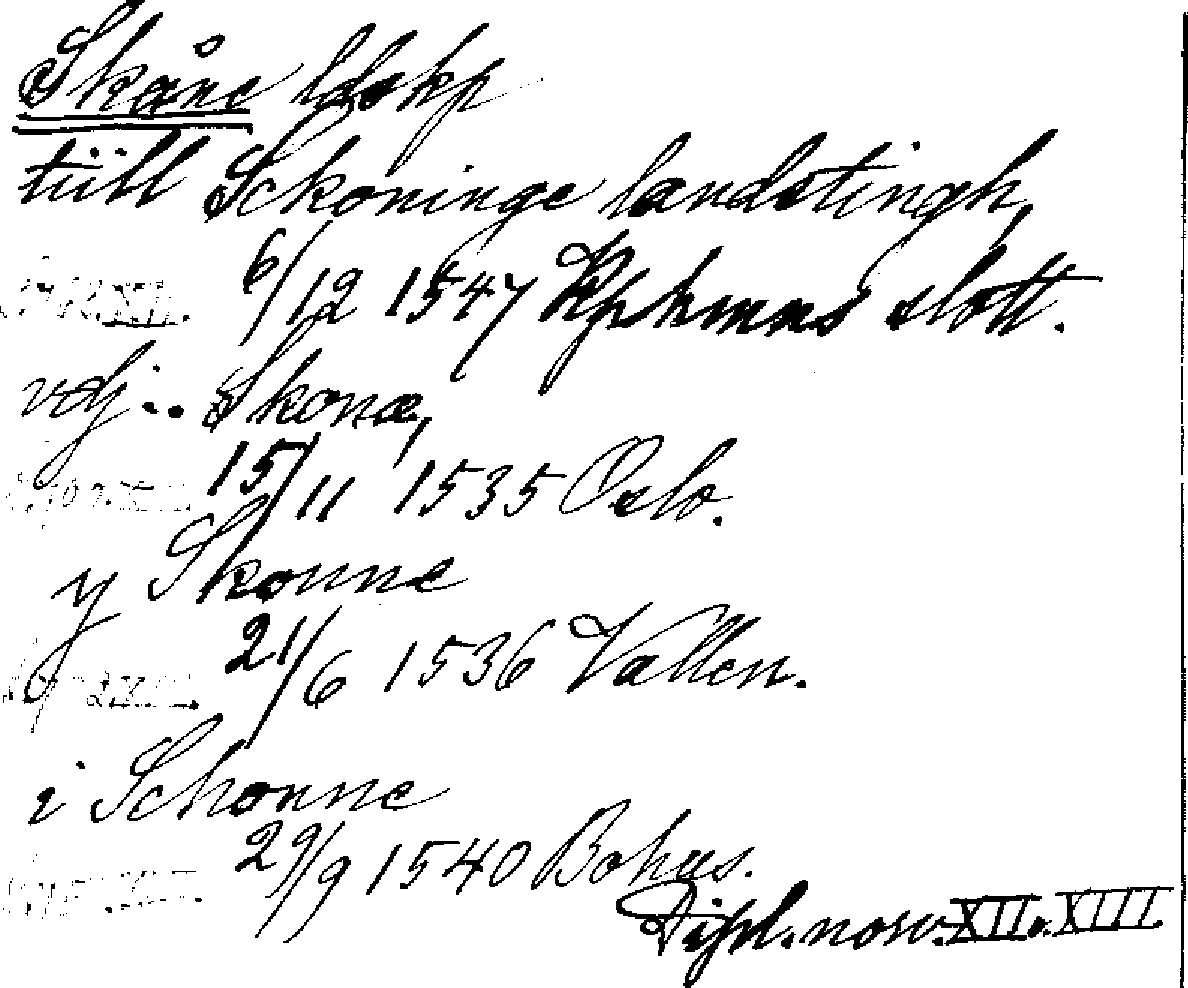 Skåne ldskp
tiill Sckoninge landstingh,
6/12 1547 Kphmns slott.
vdj.. Skonæ,
15/11 1535 Oslo.
y Skonne
21/6 1536 Vallen.
i Schonne
29/9 1540 Bohus.
Dipl. norv. XII. XIII.